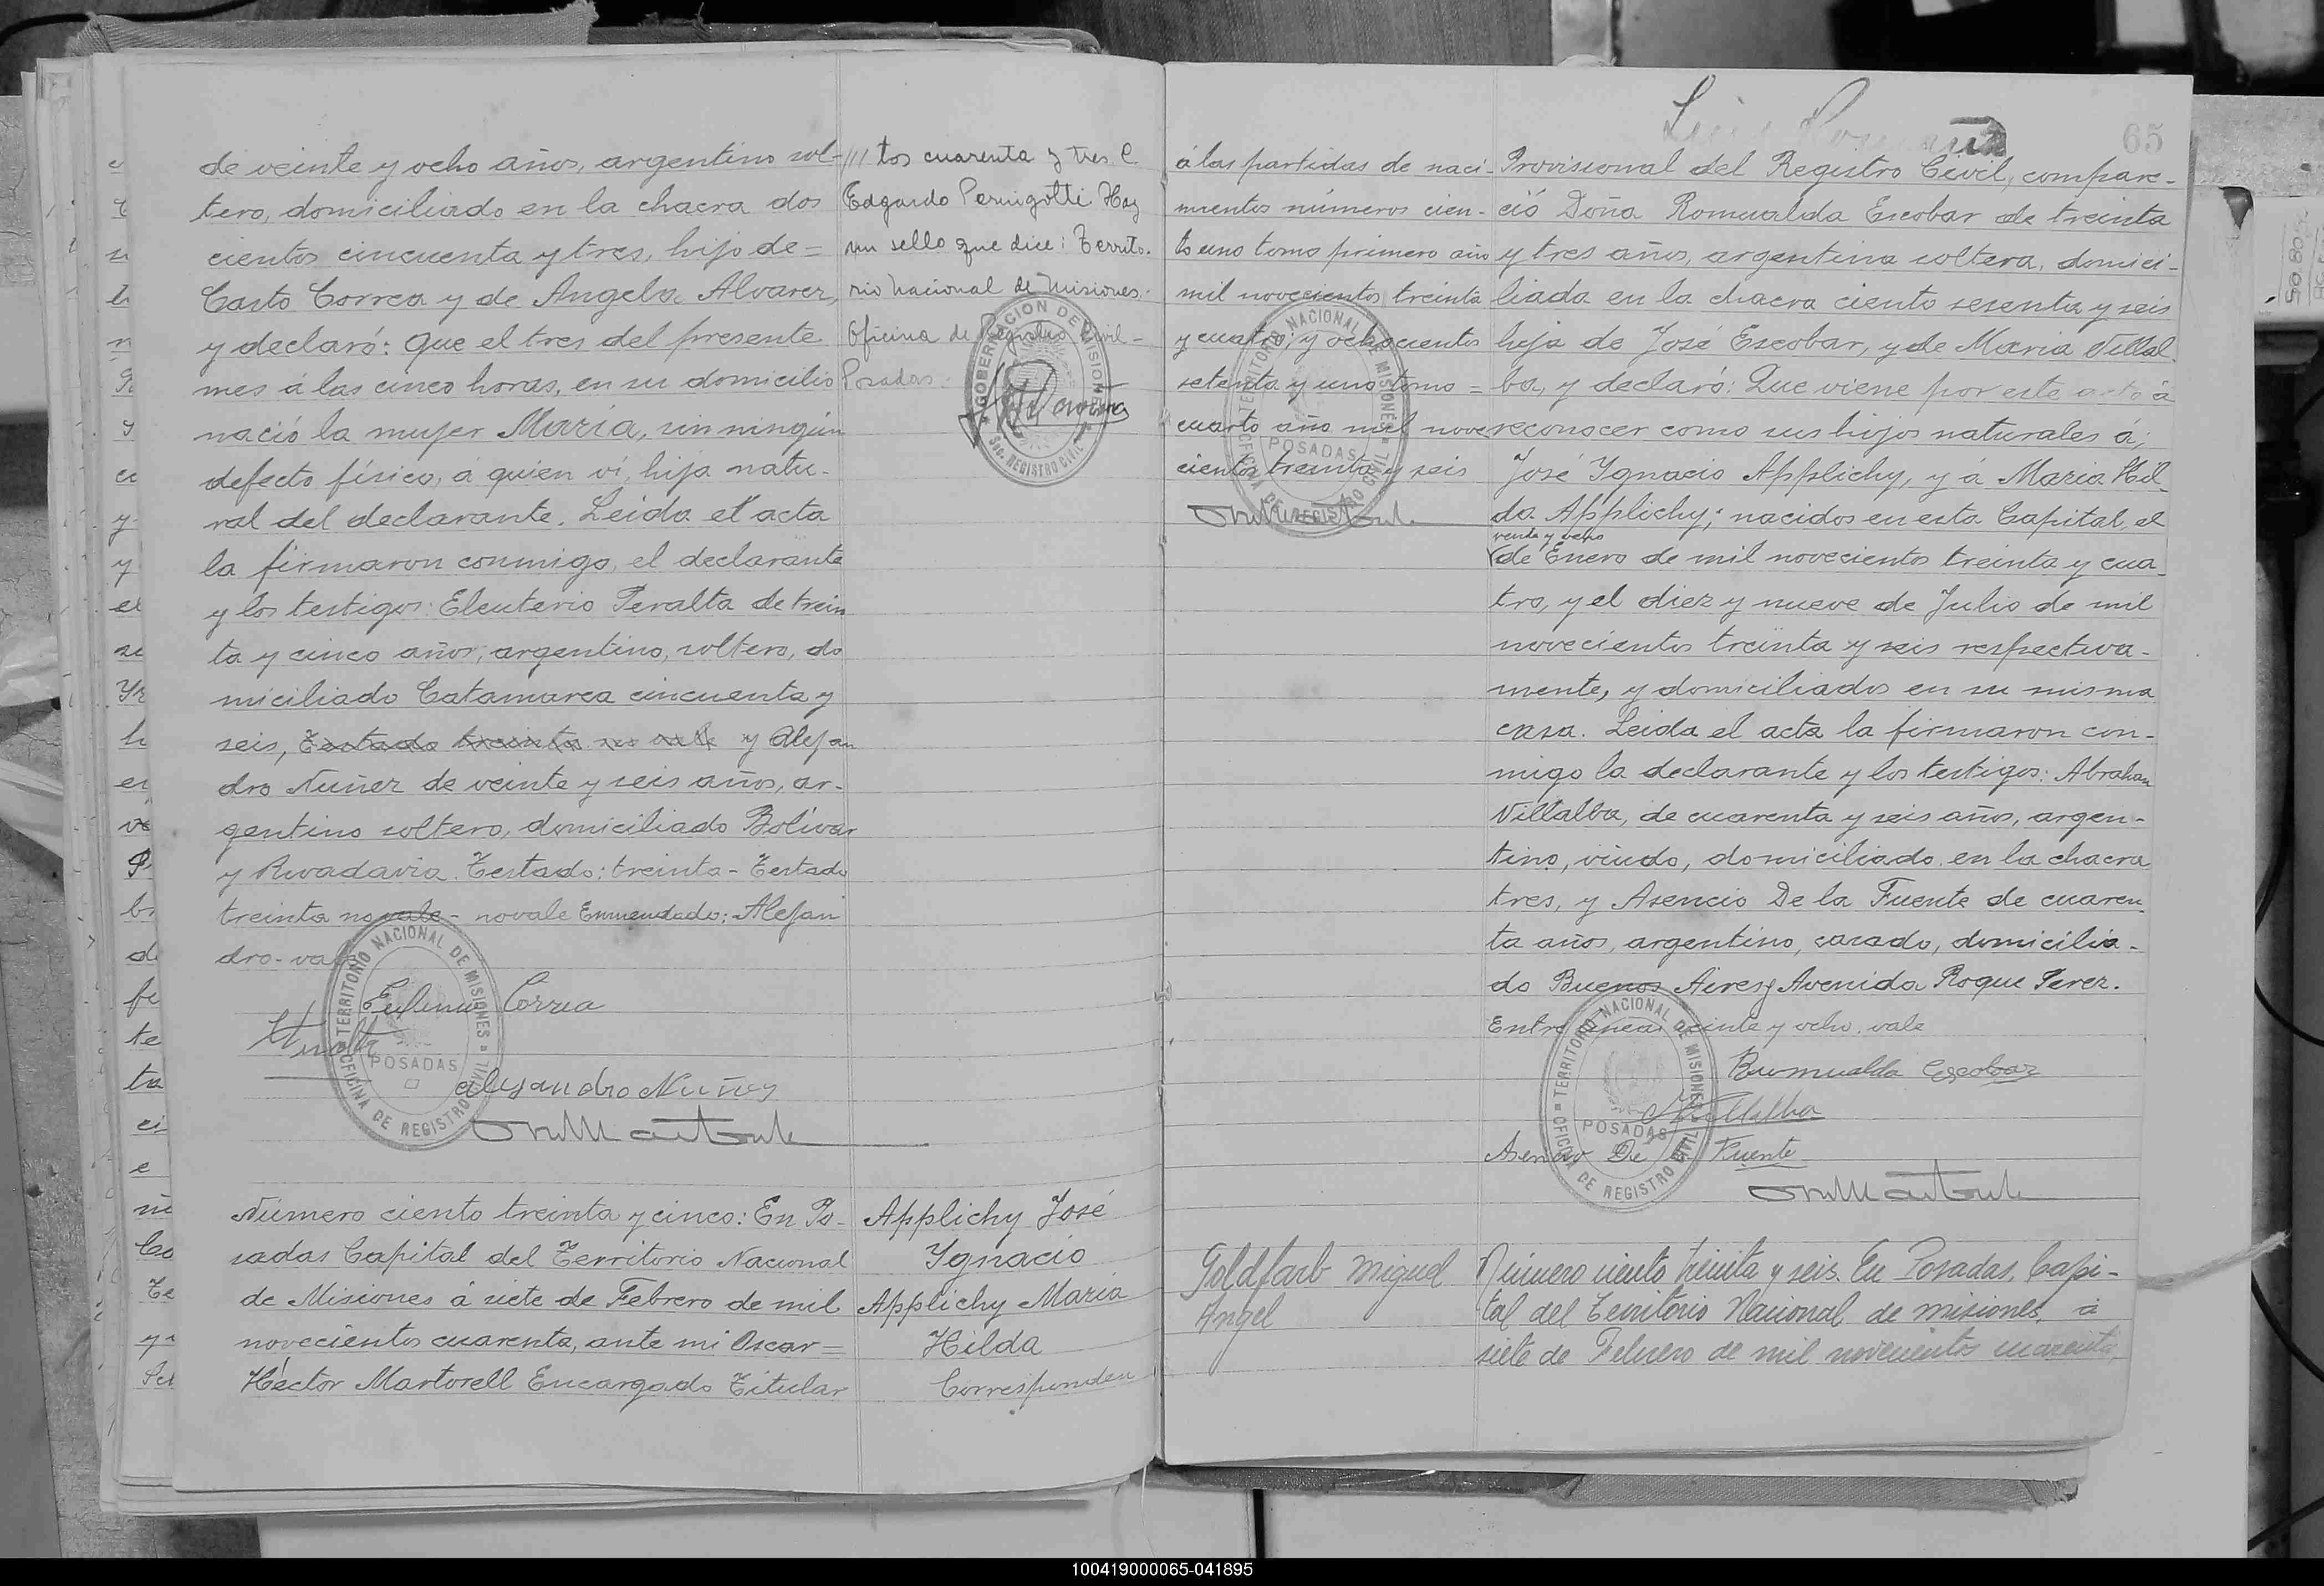 de veinte y ocho años, argentino sol-
tero, domiciliado en la chacra dos
cientos cincuenta y tres, hijo de =
Casto Correa y de Angela Alvarez,
y declaró: Que el tres del presente
mes á las cinco horas, en su domicilio
nació la mujer María, sin ningún
defecto físico, á quien ví, hija natu-
ral del declarante. Leida el acta
la firmaron conmigo, el declarante
y los testigos: Eleuterio Peralta de trein
ta y cinco años, argentino, soltero, do
miciliado Catamarca cincuenta y
seis, y Alejan
dro Nuñez de veinte y seis años, ar-
gentino soltero, domiciliado Bolívar
y Rivadavia. Testado: treinta - Testado
treinta no vale - no vale Enmendado: Alejan
dro - vale
Correa
Alejandro Nuñez
TERRITORIO NACIONAL DE MISIONES
POSADAS
OFICINA DE REGISTRO CIVIL
Número ciento treinta y cinco: En Po-
sadas Capital del Territorio Nacional
de Misiones á siete de Febrero de mil
novecientos cuarenta, ante mi Oscar =
Héctor Martorell Encargado Titular
/// tos cuarenta y tres C.
Edgardo Pernigotti Hay
un sello que dice: Territo-
rio Nacional de Misiones.
Oficina de Registro Civil -
Posadas.
GOBERNACION DE MISIONES
Sec. REGISTRO CIVIL
Applichy José
Ygnacio
Applichy Maria
Hilda
Corresponden
65
á las partidas de naci-
mientos números cien-
to uno tomo primero año
mil novecientos treinta
y cuatro, y ochocientos
setenta y uno tomo =
cuarto año mil nove
cientos treinta y seis
TERRITORIO NACIONAL DE MISIONES
POSADAS
OFICINA DE REGISTRO CIVIL
Provisional del Registro Civil, compare-
ció Doña Romualda Escobar de treinta
y tres años, argentina soltera, domici-
liada en la chacra ciento sesenta y seis
hija de José Escobar, y de Maria Villal
ba, y declaró: Que viene por este acto á
reconocer como sus hijos naturales á;
José Ygnacio Applichy, y á Maria Hil-
da Applichy; nacidos en esta Capital, el
veinte y ocho
de Enero de mil novecientos treinta y cua-
tro, y el diez y nueve de Julio de mil
novecientos treinta y seis respectiva-
mente, y domiciliados en su misma
casa. Leida el acta la firmaron con-
migo la declarante y los testigos: Abrahan
Villalba, de cuarenta y seis años, argen-
tino, viudo, domiciliado en la chacra
tres, y Asencio De la Fuente de cuaren-
ta años, argentino, casado, domicilia-
do Buenos Aires y Avenida Roque Perez.
Entre lineas veinte y ocho. vale
Rumualda Escobar
Villalba
Asencio De la Fuente
TERRITORIO NACIONAL DE MISIONES
POSADAS
OFICINA DE REGISTRO CIVIL
Goldfarb Miguel
Angel
Número ciento treinta y seis. En Posadas, Capi-
tal del Territorio Nacional de Misiones, a
siete de Febrero de mil novecientos cuarenta,
100419000065-041895